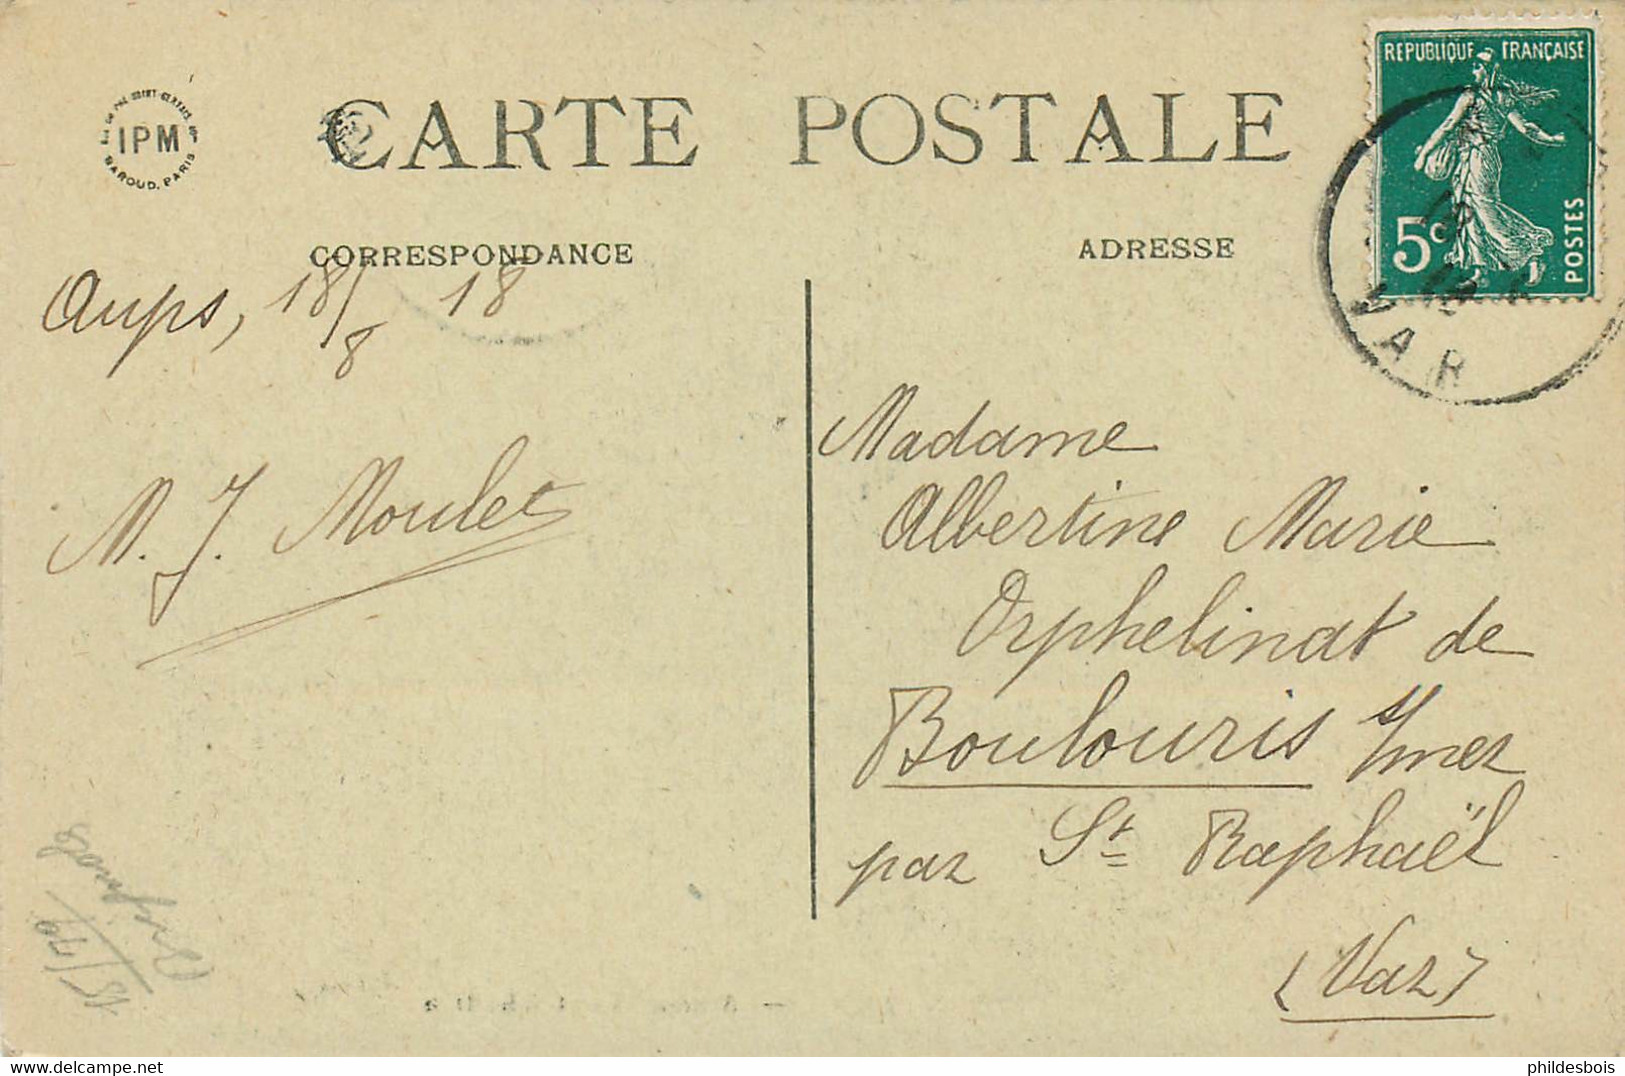 CARTE POSTALE
IPM
BAROUD. PARIS
REPUBLIQUE FRANÇAISE
5c
POSTES
VAR
CORRESPONDANCE
ADRESSE
Aups, 18/8 18
M. J. Moulet
Madame
Albertine Marie
Orphelinat de
Boulouris s/mer
par St Raphaël
(Var)
delcampe.net
phildesbois